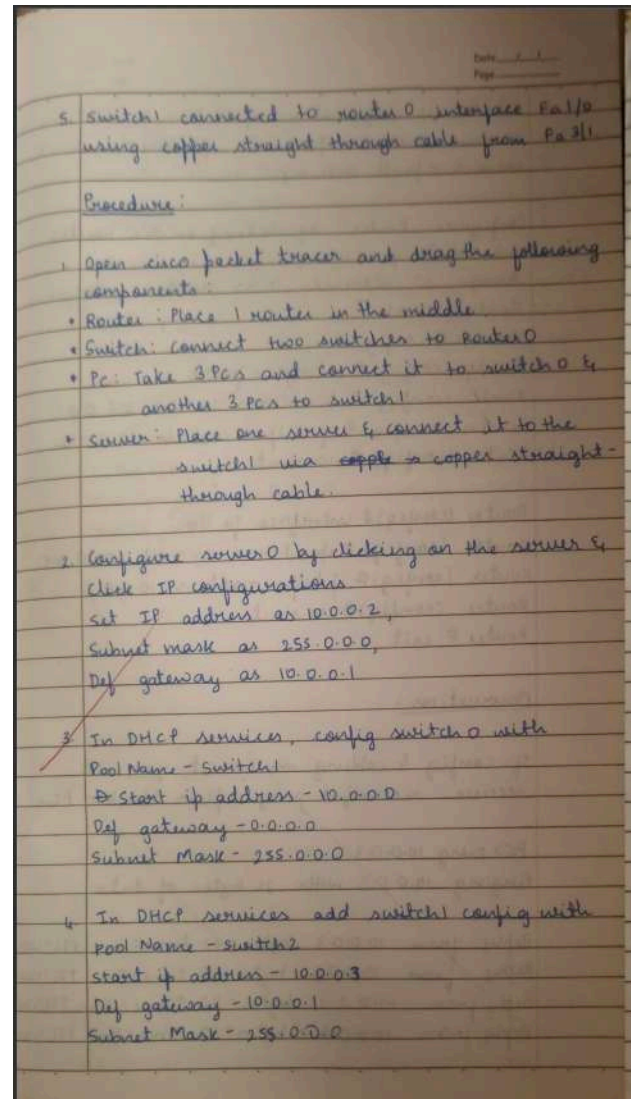 Date / /
Page
5. Switch1 connected to router 0 interface Fa1/0
using copper straight through cable from Fa3/1
Procedure:
1. Open cisco packet tracer and drag the following
components:
• Router: Place 1 router in the middle
• Switch: connect two switches to Router0
• Pc: Take 3 PCs and connect it to switch 0 &
another 3 PCs to switch1
• Server: Place one server & connect it to the
switch1 via copper straight-
through cable.
2. Configure server 0 by clicking on the server &
click IP configurations
Set IP address as 10.0.0.2,
Subnet mask as 255.0.0.0,
Def gateway as 10.0.0.1
3. In DHCP services, config switch 0 with
Pool Name - Switch1
Start ip address - 10.0.0.0
Def gateway - 0.0.0.0
Subnet Mask - 255.0.0.0
4. In DHCP services add switch1 config with
Pool Name - Switch2
Start ip address - 10.0.0.3
Def gateway - 10.0.0.1
Subnet Mask - 255.0.0.0